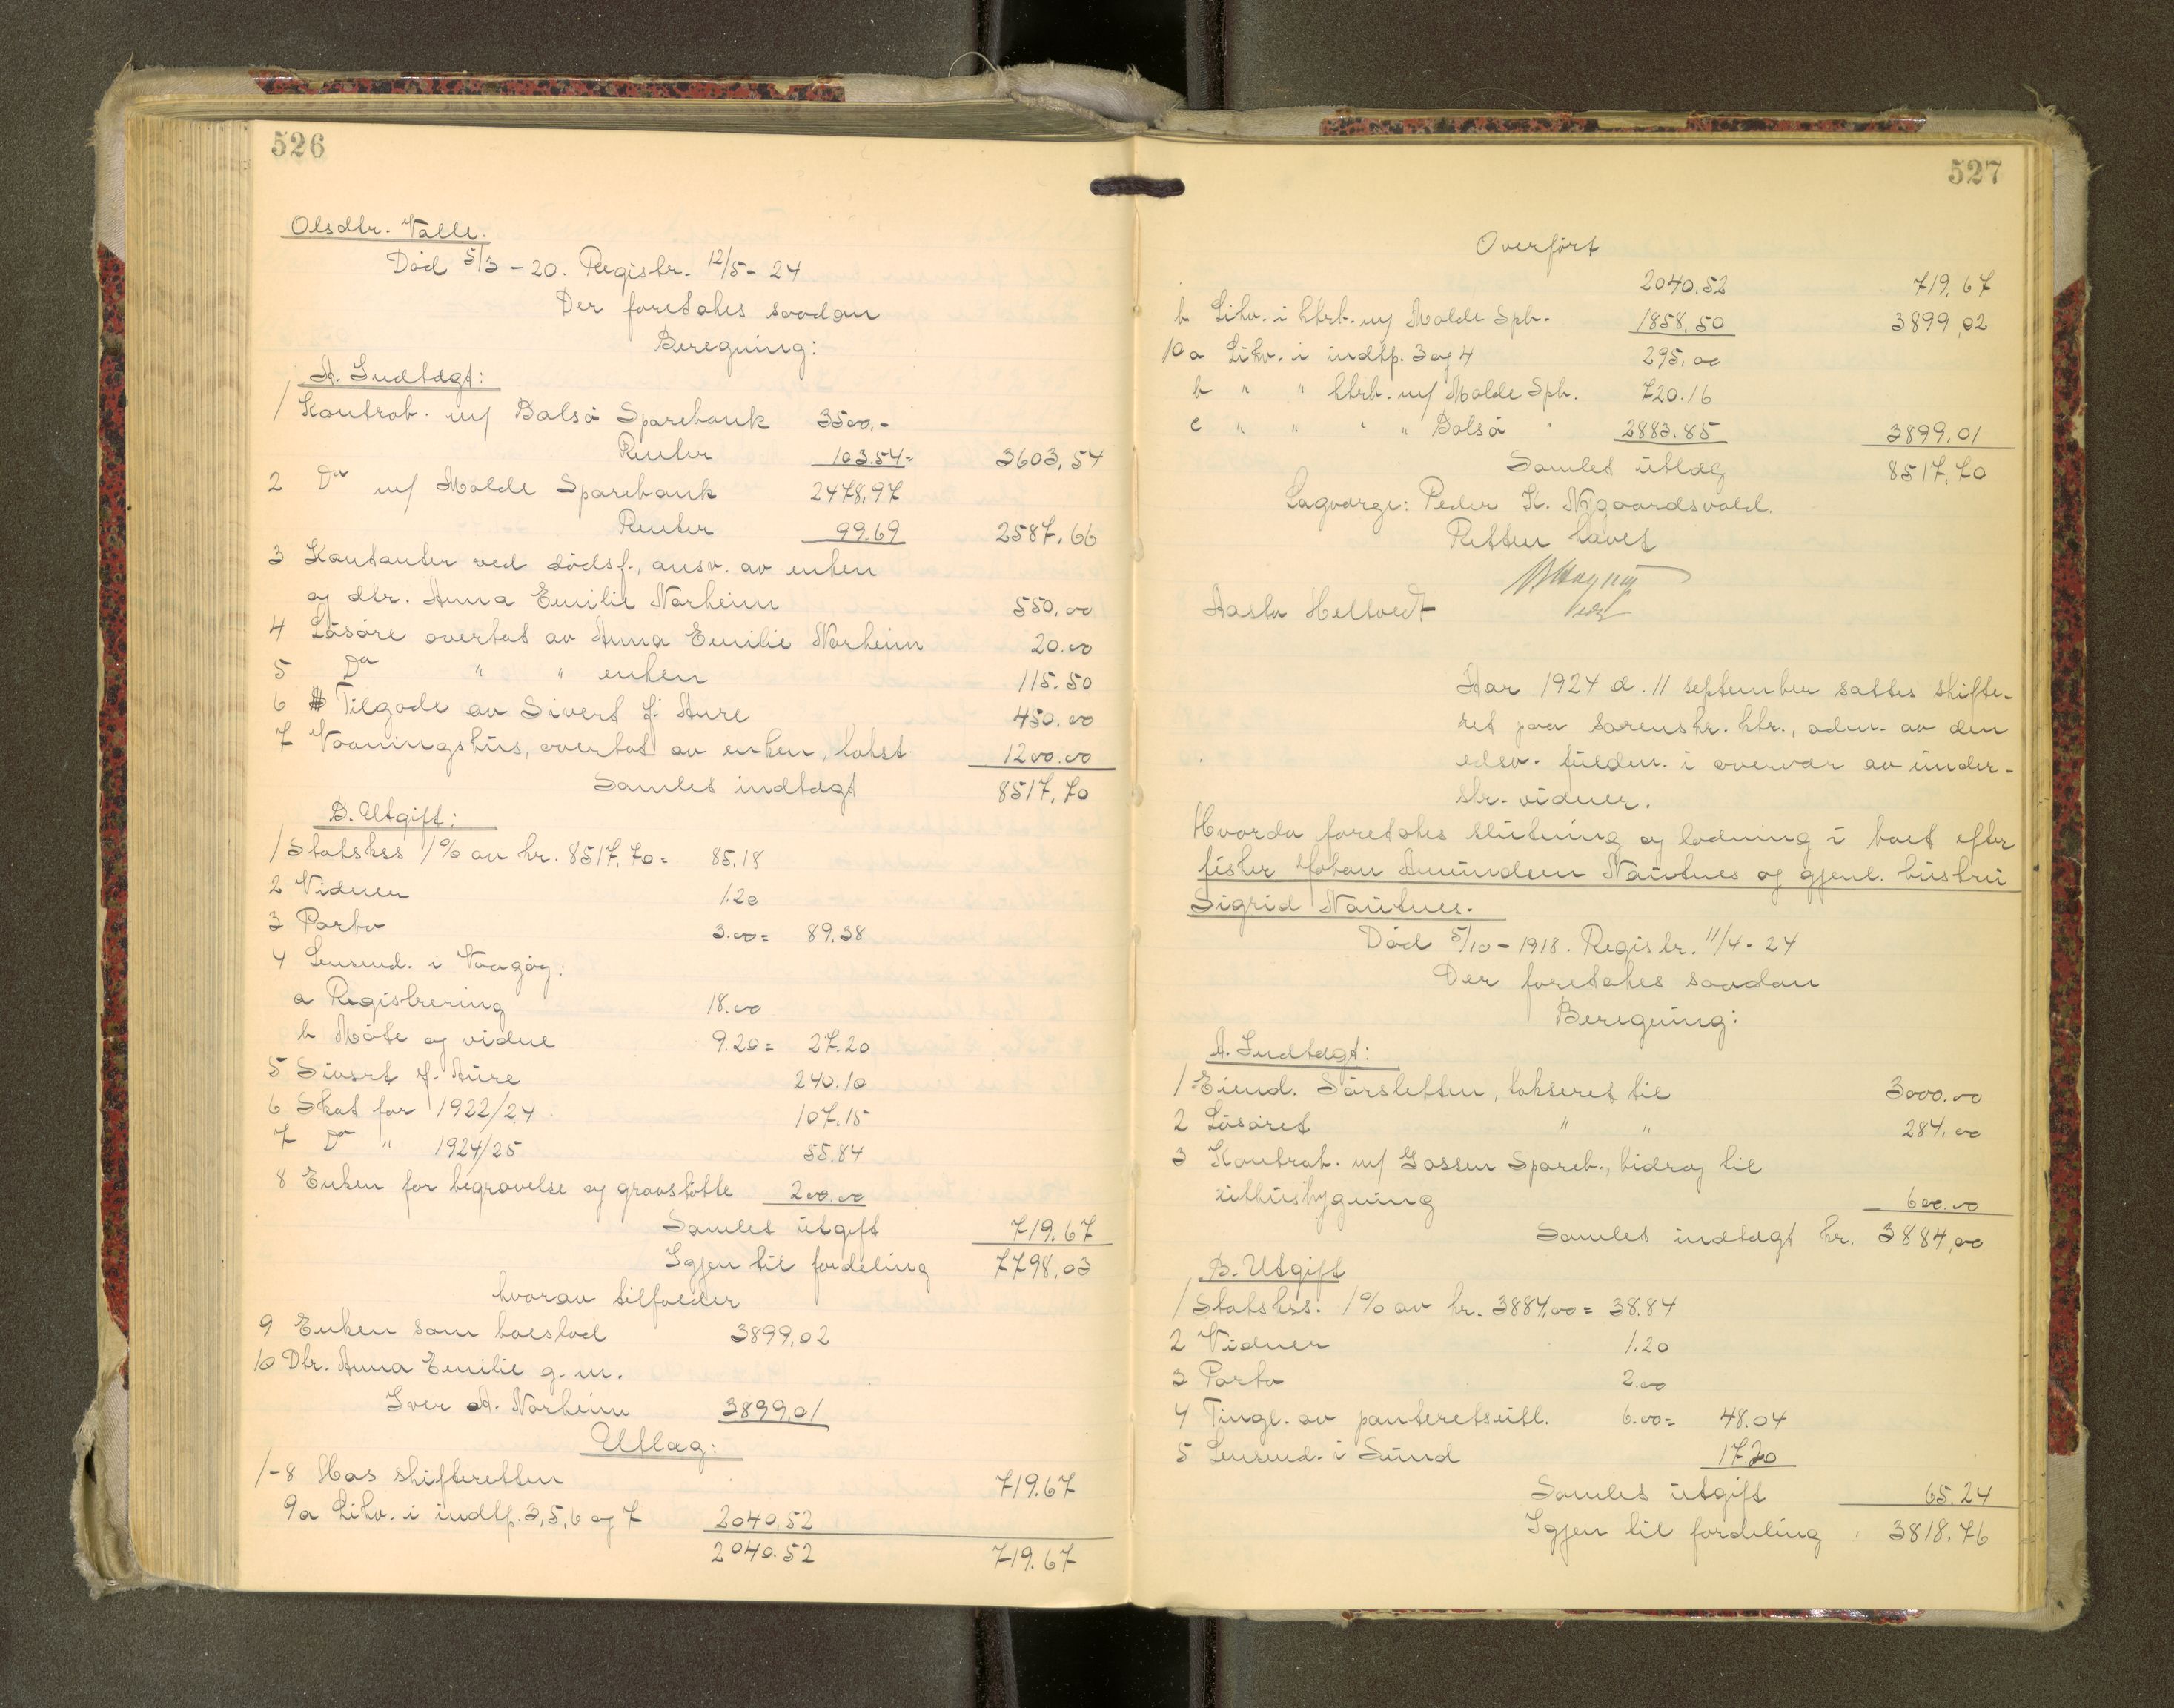 526
Olsdtr. Valle.
Död 5/3 - 20. Registr. 12/5 - 24
Der foretakes saadan
Beregning:
A. Indtægt:
1 Kontrab. m/ Bolsö Sparebank 3500,-
Renter 103.54 = 3603,54
2 Do m/ Molde Sparebank 2478,97
Renter 99.69 2587,66
3 Kontanter ved dödsf., ansv. av enken
og dtr. Anna Emilie Norheim 550,00
4 Lösöre overtat av Anna Emilie Norheim 20.00
5 Do " " enken 115.50
6 Tilgode av Sivert J. Aure 450.00
7 Vaaningshus, overtat av enken, takst 1200.00
Samlet indtægt 8517,70
B. Utgift:
1 Statskss 1% av kr. 8517,70 = 85.18
2 Vidner 1.20
3 Porto 3.00 = 89.38
4 Lensmd. i Vaagöy:
a Registrering 18.00
b Möte og vidne 9.20 = 27.20
5 Sivert J. Aure 240.10
6 Skat for 1922/24 107.15
7 Do " 1924/25 55.84
8 Enken for begravelse og gravstötte 200.00
Samlet utgift 719.67
Igjen til fordeling 7798,03
hvorav tilfalder
9 Enken som boeslod 3899,02
10 Dtr. Anna Emilie g. m.
Iver A. Norheim 3899,01
Utlæg:
1-8 Hos skifteretten 719.67
9a Likv. i indtp. 3,5,6 og 7 2040,52
2040.52 719.67
527
Overfört
2040,52 719,67
b Likv. i ktrb. m/ Molde Spb. 1858,50 3899,02
10 a Likv. i indtp. 3 og 4 295,00
b " " ktrb. m/ Molde Spb. 720.16
c " " " " Bolsö " 2883.85 3899,01
Samlet utlæg 8517,70
Lagværge: Peder K. Nygaardsvold.
Retten hævet
Aasta Heltvedt
Aar 1924 d. 11 september sattes skifte-
ret paa sorenskr. ktr., adm. av den
edsv. fuldm. i overvær av under-
skr. vidner.
Hvorda foretakes slutning og lodning i boet efter
fisker Johan Amundsen Nautnes og gjenl. hustru
Sigrid Nautnes.
Död 5/10 - 1918. Registr. 11/4 - 24
Der foretakes saadan
Beregning:
A. Indtægt:
1 Eiend. Sörsletten, takseret til 3000.00
2 Lösöret " " 284,00
3 Kontrab. m/ Gossen Spareb., bidrag til
uthusbygning 600.00
Samlet indtægt kr. 3884,00
B. Utgift
1 Statskss. 1% av kr. 3884,00 = 38.84
2 Vidner 1.20
3 Porto 2.00
4 Tingl. av panteretsutl. 6.00 = 48.04
5 Lensmd. i Sund 17.20
Samlet utgift 65.24
Igjen til fordeling 3818,76